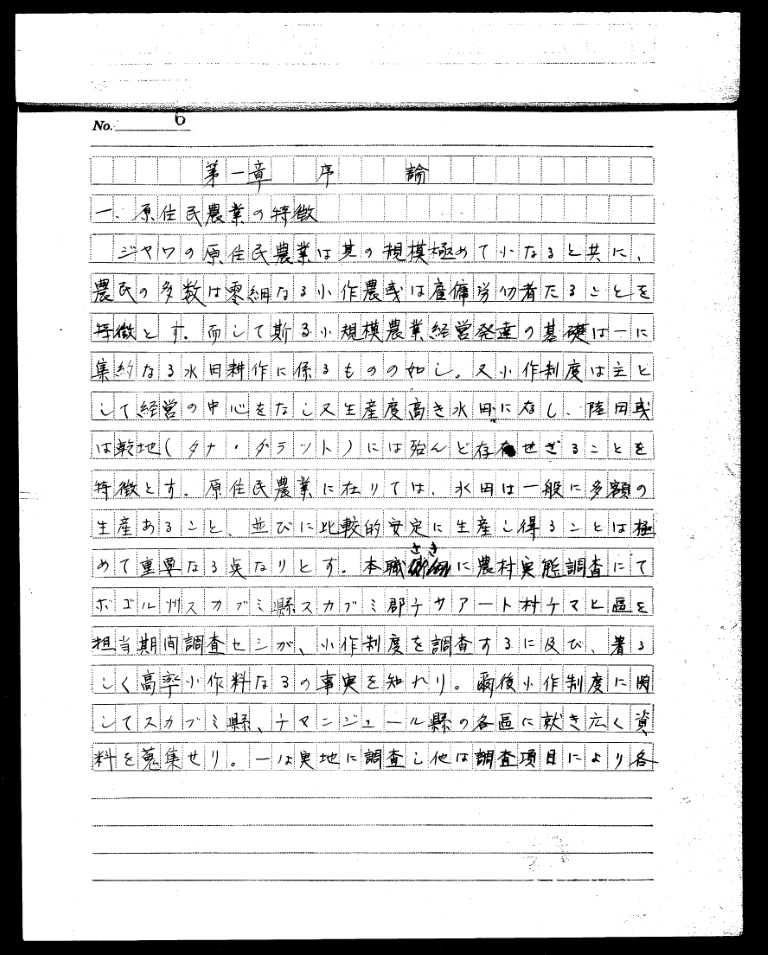 No. 6
第一章 序 論
一. 原住民農業の特徴
ジヤワの原住民農業は其の規模極めて小なると共に、
農民の多数は零細なる小作農或は雇傭労仂者たることを
特徴とす。而して斯る小規模農業経営発達の基礎は一に
集約なる水田耕作に係るものの如し。又小作制度は主と
して経営の中心をなし又生産度高き水田に存し、陸田或
は乾地(タナ・ダラット)には殆んど存せざることを
特徴とす。原住民農業に在りては、水田は一般に多額の
生産あること、並びに比較的安定に生産し得ることは極
めて重要なる点なりとす。本職さきに農村実態調査にて
ボゴル州スカブミ縣スカブミ郡チサアート村チマヒ區を
担当期間調査セシが、小作制度を調査するに及び、著る
しく高率小作料なるの事実を知れり。爾後小作制度に関
してスカブミ縣、チアンジュール縣の各區に就き広く資
料を蒐集せり。一は実地に調査し他は調査項目により各